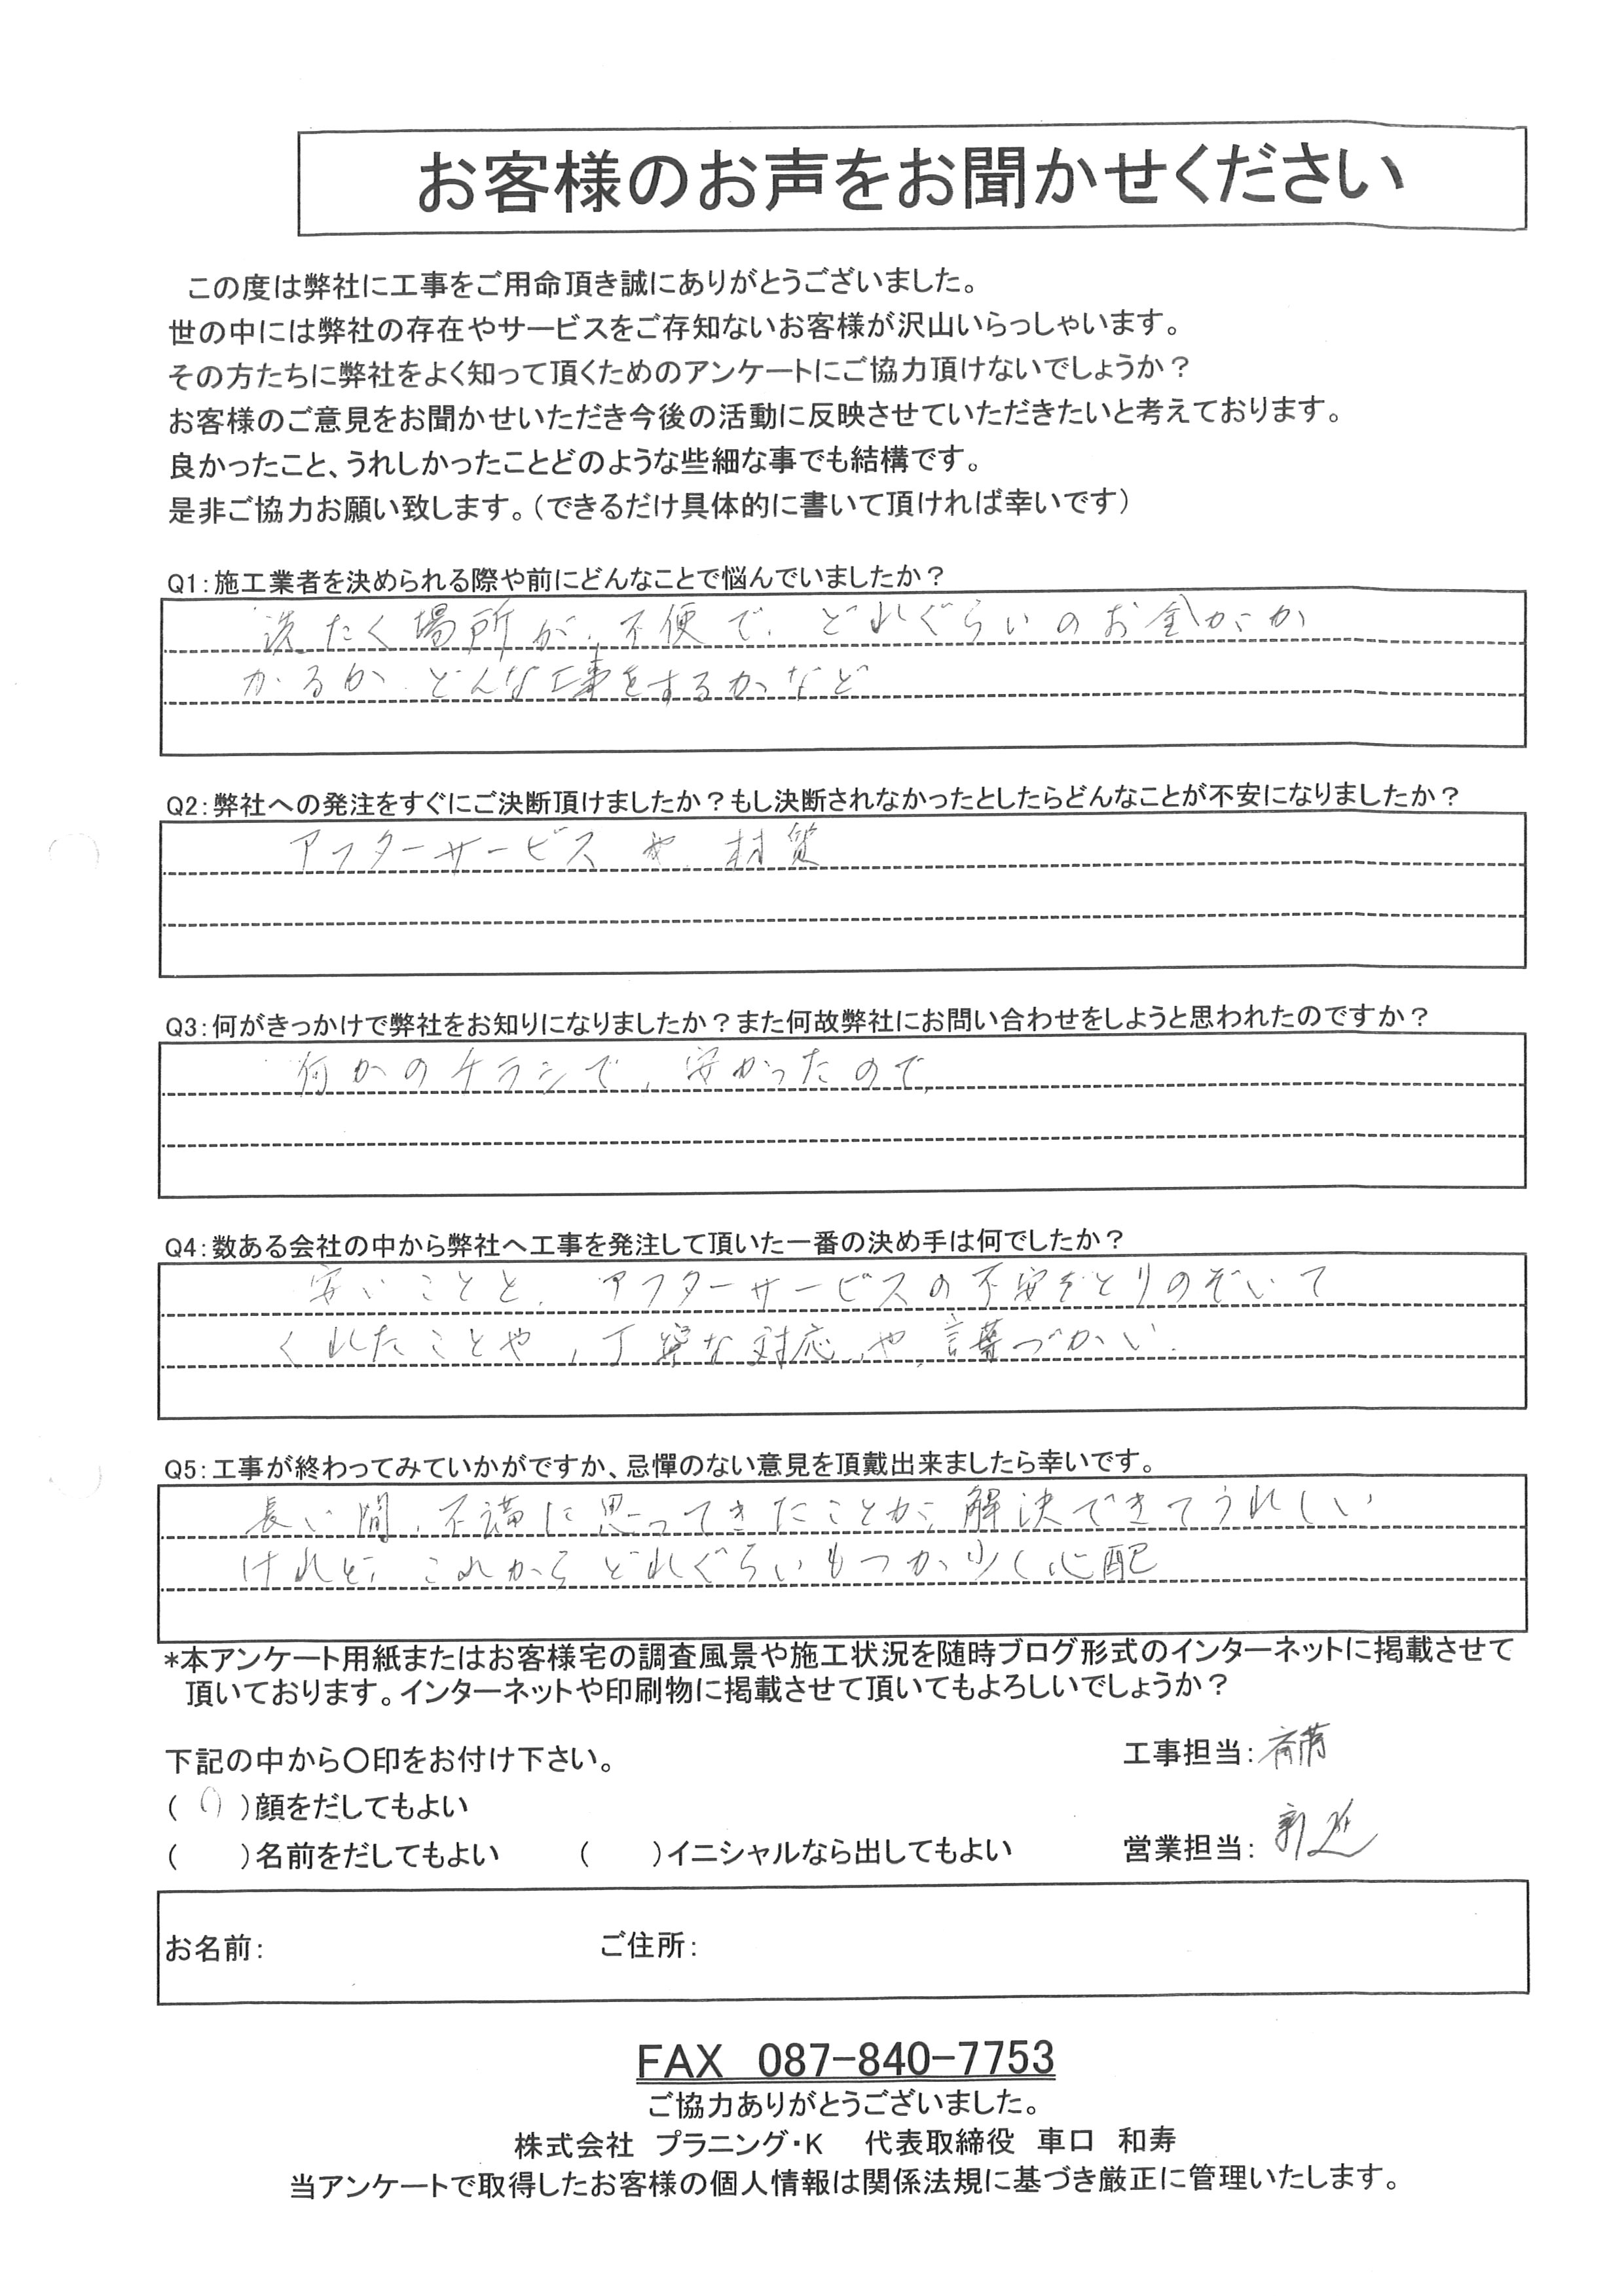 お客様のお声をお聞かせください
この度は弊社に工事をご用命頂き誠にありがとうございました。
世の中には弊社の存在やサービスをご存知ないお客様が沢山いらっしゃいます。
その方たちに弊社をよく知って頂くためのアンケートにご協力頂けないでしょうか？
お客様のご意見をお聞かせいただき今後の活動に反映させていただきたいと考えております。
良かったこと、うれしかったことどのような些細な事でも結構です。
是非ご協力お願い致します。（できるだけ具体的に書いて頂ければ幸いです）
Q1：施工業者を決められる際や前にどんなことで悩んでいましたか？
洗たく場所が、不便で、どれぐらいのお金がか
かるか、どんな工事をするかなど
Q2：弊社への発注をすぐにご決断頂けましたか？もし決断されなかったとしたらどんなことが不安になりましたか？
アフターサービスや、材質
Q3：何がきっかけで弊社をお知りになりましたか？また何故弊社にお問い合わせをしようと思われたのですか？
何かのチラシで、安かったので、
Q4：数ある会社の中から弊社へ工事を発注して頂いた一番の決め手は何でしたか？
安いことと、アフターサービスの不安をとりのぞいて
くれたことや、丁寧な対応や、言葉づかい、
Q5：工事が終わってみていかがですか、忌憚のない意見を頂戴出来ましたら幸いです。
長い間、不満に思ってきたことが、解決できてうれしい
けれど、これからどれぐらいもつか少し心配
*本アンケート用紙またはお客様宅の調査風景や施工状況を随時ブログ形式のインターネットに掲載させて
頂いております。インターネットや印刷物に掲載させて頂いてもよろしいでしょうか？
下記の中から〇印をお付け下さい。
工事担当：斉藤
（〇）顔をだしてもよい
（　）名前をだしてもよい　（　）イニシャルなら出してもよい
営業担当：
お名前：　ご住所：
FAX 087-840-7753
ご協力ありがとうございました。
株式会社 プラニング・K 代表取締役 車口 和寿
当アンケートで取得したお客様の個人情報は関係法規に基づき厳正に管理いたします。